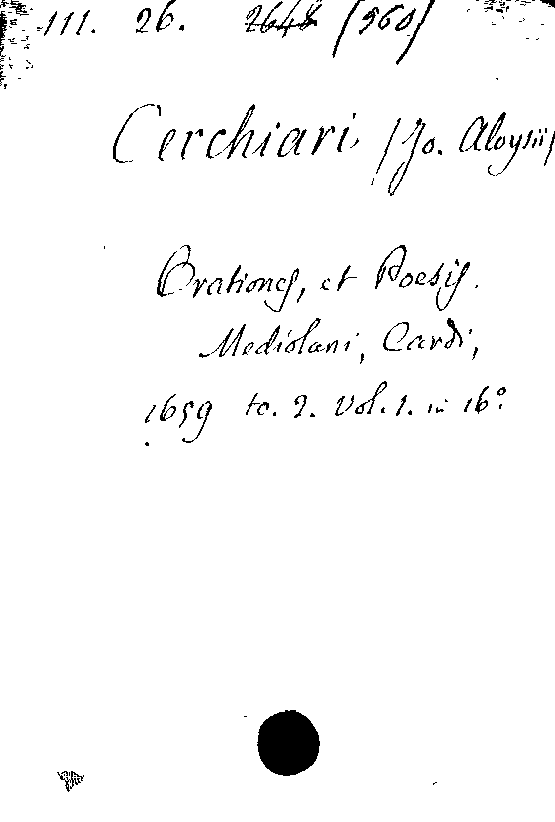 111. 26. 2648 (560)
Cerchiari (Jo. Aloysii)
Orationes, et Poesis.
Mediolani, Cardi,
1659 to. 2. Vol. 1. in 16º